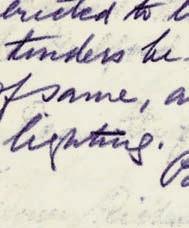 erected to
tenders be
of same, a
lighting.